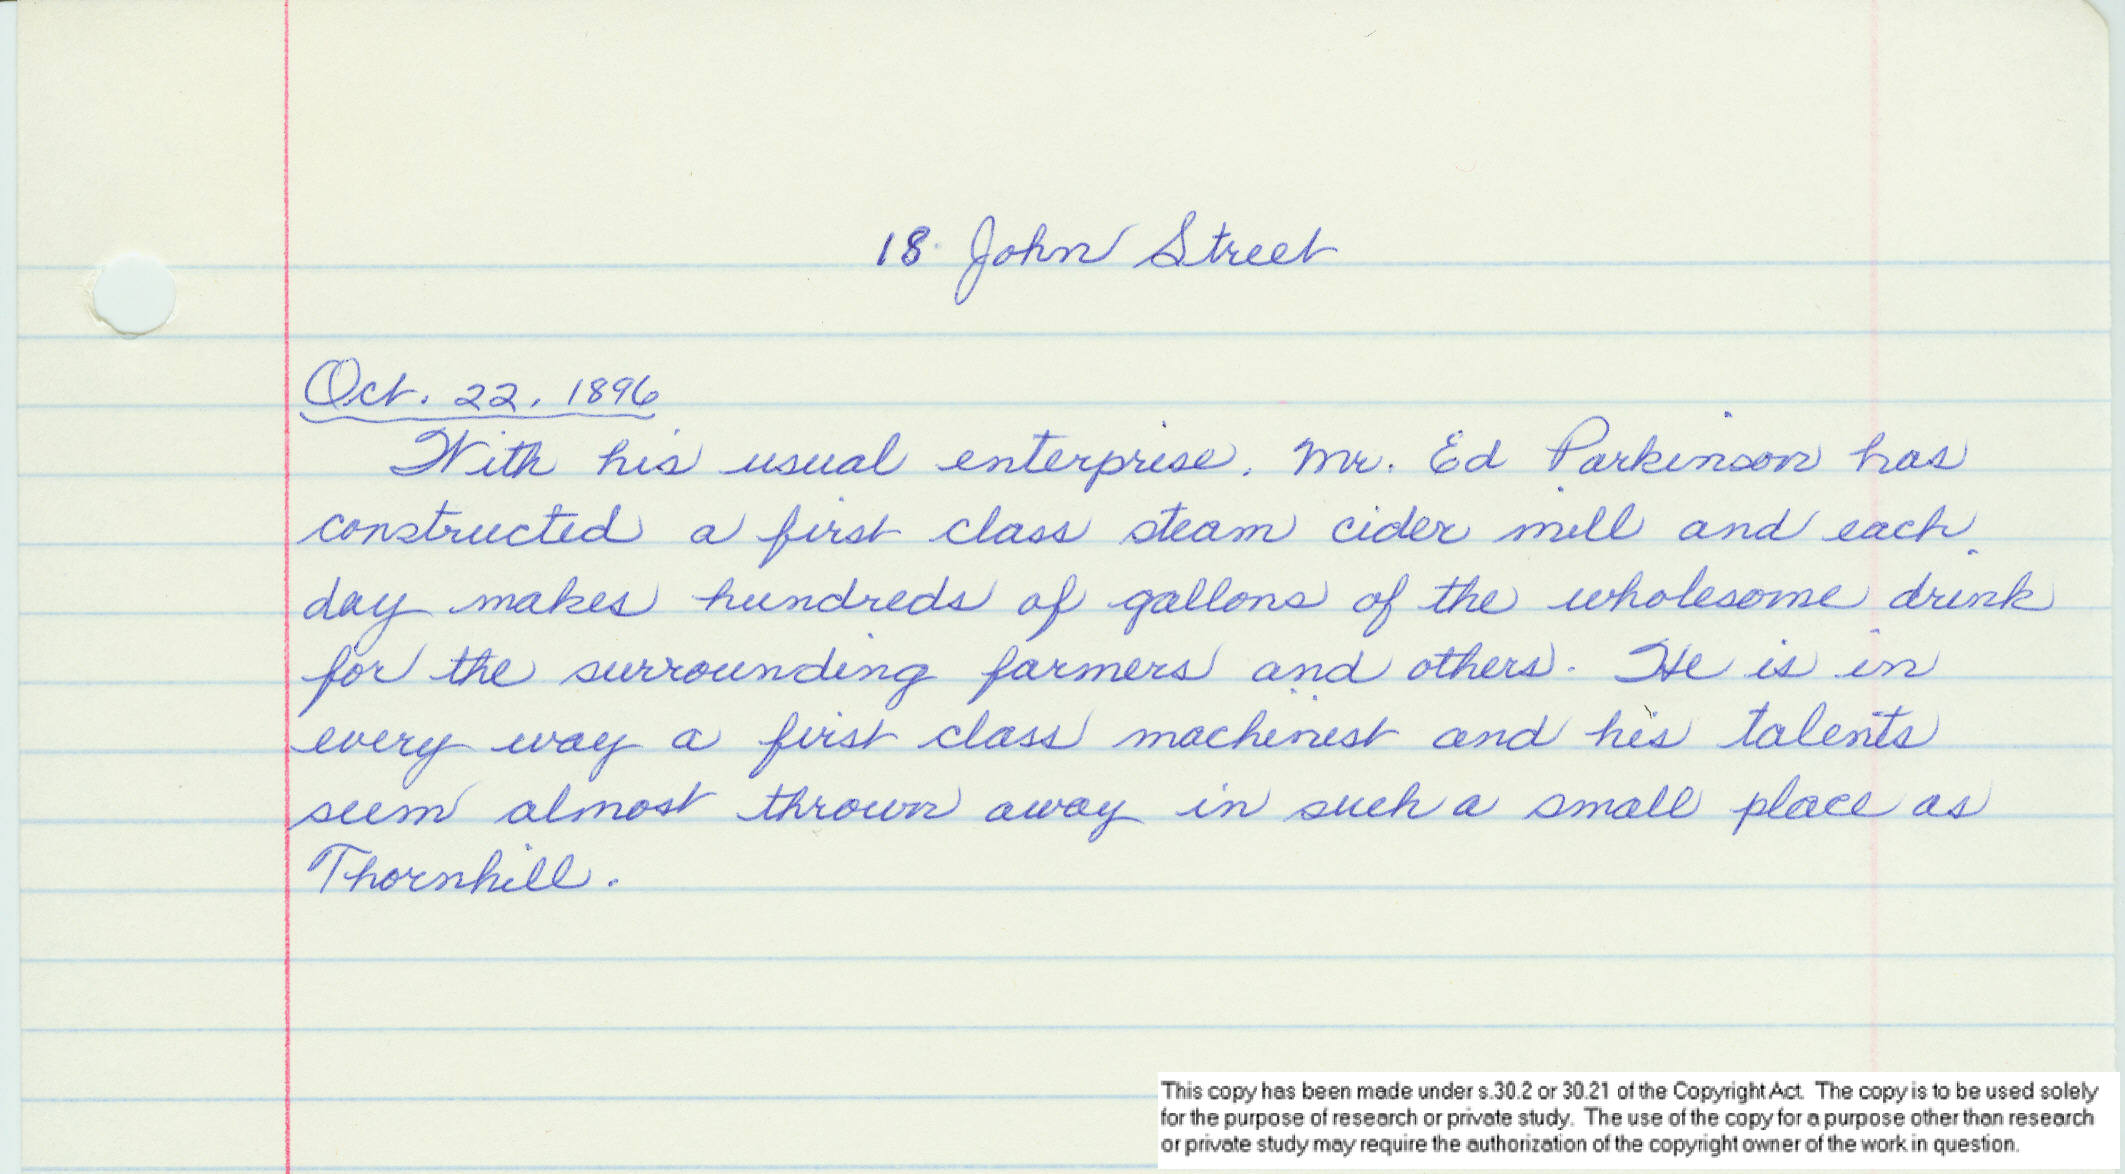 18 John Street
Oct. 22, 1896
With his usual enterprise, Mr. Ed Parkinson has
constructed a first class steam cider mill and each
day makes hundreds of gallons of the wholesome drink
for the surrounding farmers and others. He is in
every way a first class machinist and his talents
seem almost thrown away in such a small place as
Thornhill.
This copy has been made under s.30.2 or 30.21 of the Copyright Act. The copy is to be used solely
for the purpose of research or private study. The use of the copy for a purpose other than research
or private study may require the authorization of the copyright owner of the work in question.